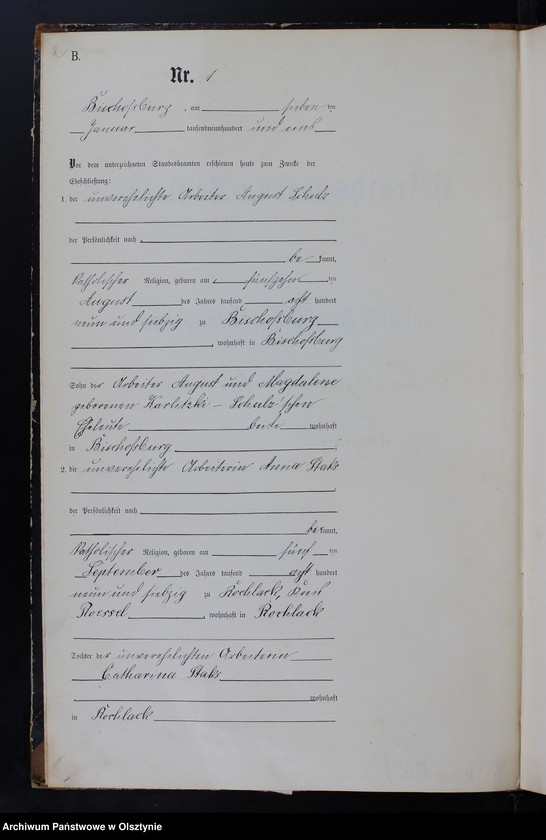 B.
Nr. 1
Bischofsburg, am sieben ten
Januar tausendneunhundert und eins
Vor dem unterzeichneten Standesbeamten erschienen heute zum Zwecke der
Eheschließung:
1. der unverehelichte Arbeiter August Schulz
der Persönlichkeit nach
be kannt,
katholischer Religion, geboren am fünfzehn ten
August des Jahres tausend acht hundert
neun und siebzig zu Bischofsburg
, wohnhaft in Bischofsburg
Sohn der Arbeiter August und Magdalene
geborenen Karlitzki - Schulz'schen
Eheleute beide wohnhaft
in Bischofsburg
2. die unverehelichte Arbeiterin Anna Staks
der Persönlichkeit nach
be kannt,
katholischer Religion, geboren am fünf ten
September des Jahres tausend acht hundert
neun und siebzig zu Rochlack, Kreis
Roessel, wohnhaft in Rochlack
Tochter der unverehelichten Arbeiterin
Catharina Staks
wohnhaft
in Rochlack
Archiwum Państwowe w Olsztynie